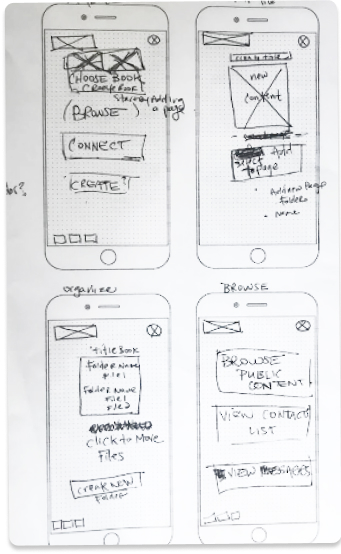 CHOOSE BOOK
CREATE BOOK
Start by Adding
a page
(BROWSE)
CONNECT
CREATE
new
content
Add
to page
Add new Page
folders
name
organize
Title Book
Folder Name
File 1
Folder Name
File 1
File 2
click to Move
Files
CREATE NEW
BROWSE
BROWSE
PUBLIC
CONTENT
VIEW CONTACT
LIST
VIEW MESSAGES